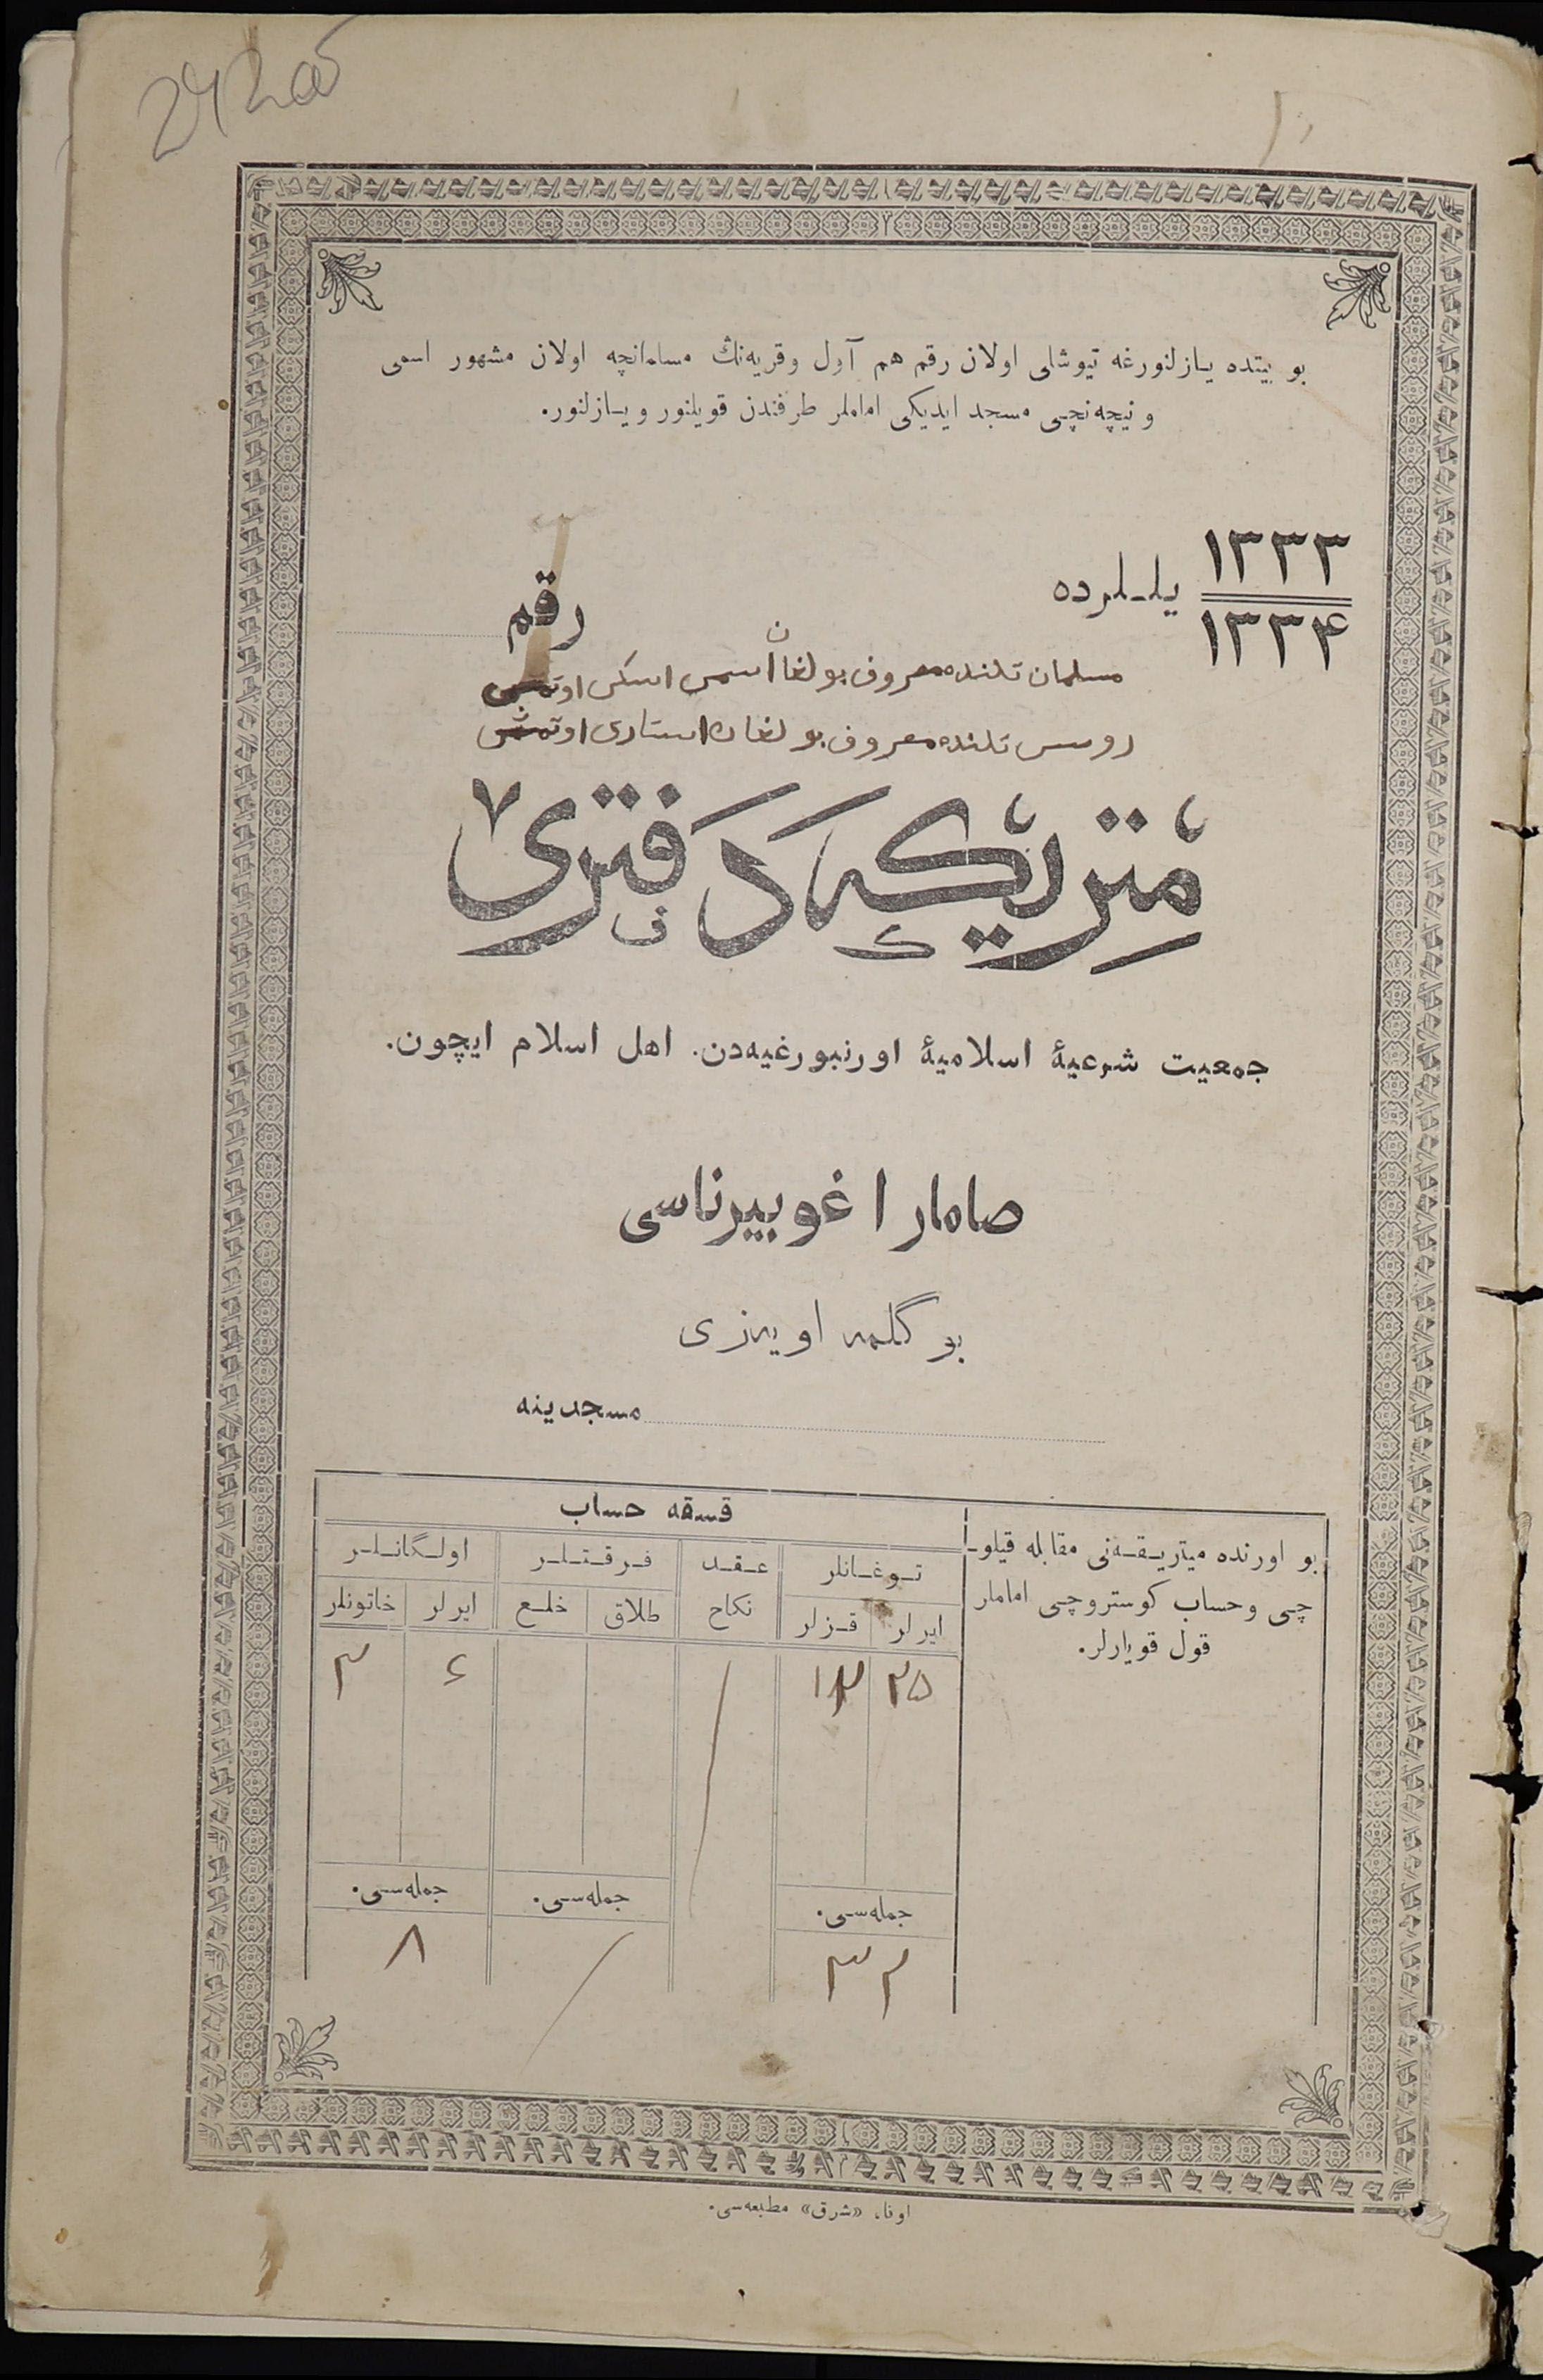 242об
بو بیتده یازلنورغه تیوشلی اولان رقم هم آول وقریه‌نڭ مسلمانچه اولان مشهور اسمی
و نیچه‌نچی مسجد ایدیکی اماملر طرفندن قویلنور و یازلنور.
۱۳۳۳
۱۳۳۴
یللرده
رقم
مسلمان تلنده معروف بولغان اسمی اسکی اوتمش
روسی تلنده معروف بولغان استاری اوتمش
متریکه دفتری
جمعیت شرعیهٔ اسلامیهٔ اورنبورغیه‌دن. اهل اسلام ایچون.
صامارا غوبیرناسی
بوگلمه اویه‌زی
مسجدینه
بو اورنده میتریقه‌نی مقابله قیلو-
چی وحساب کوستروچی اماملر
قول قویارلر.
قسقه حساب
توغانلر
عقد
نکاح
فرقتلر
اولگانلر
ایرلر
قزلر
طلاق
خلع
ایرلر
خاتونلر
۲۵
۶
۲
جمله‌سی.
جمله‌سی.
جمله‌سی.
۳۲
۸
اوفا، «شرق» مطبعه‌سی.